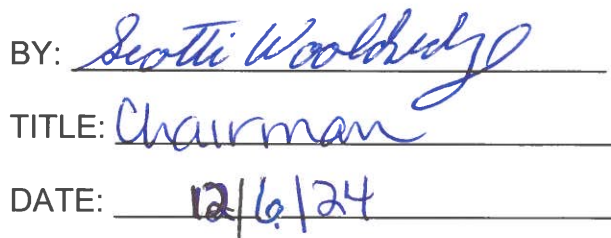 BY: Scotti Wooldridge
TITLE: Chairman
DATE: 12/6/24